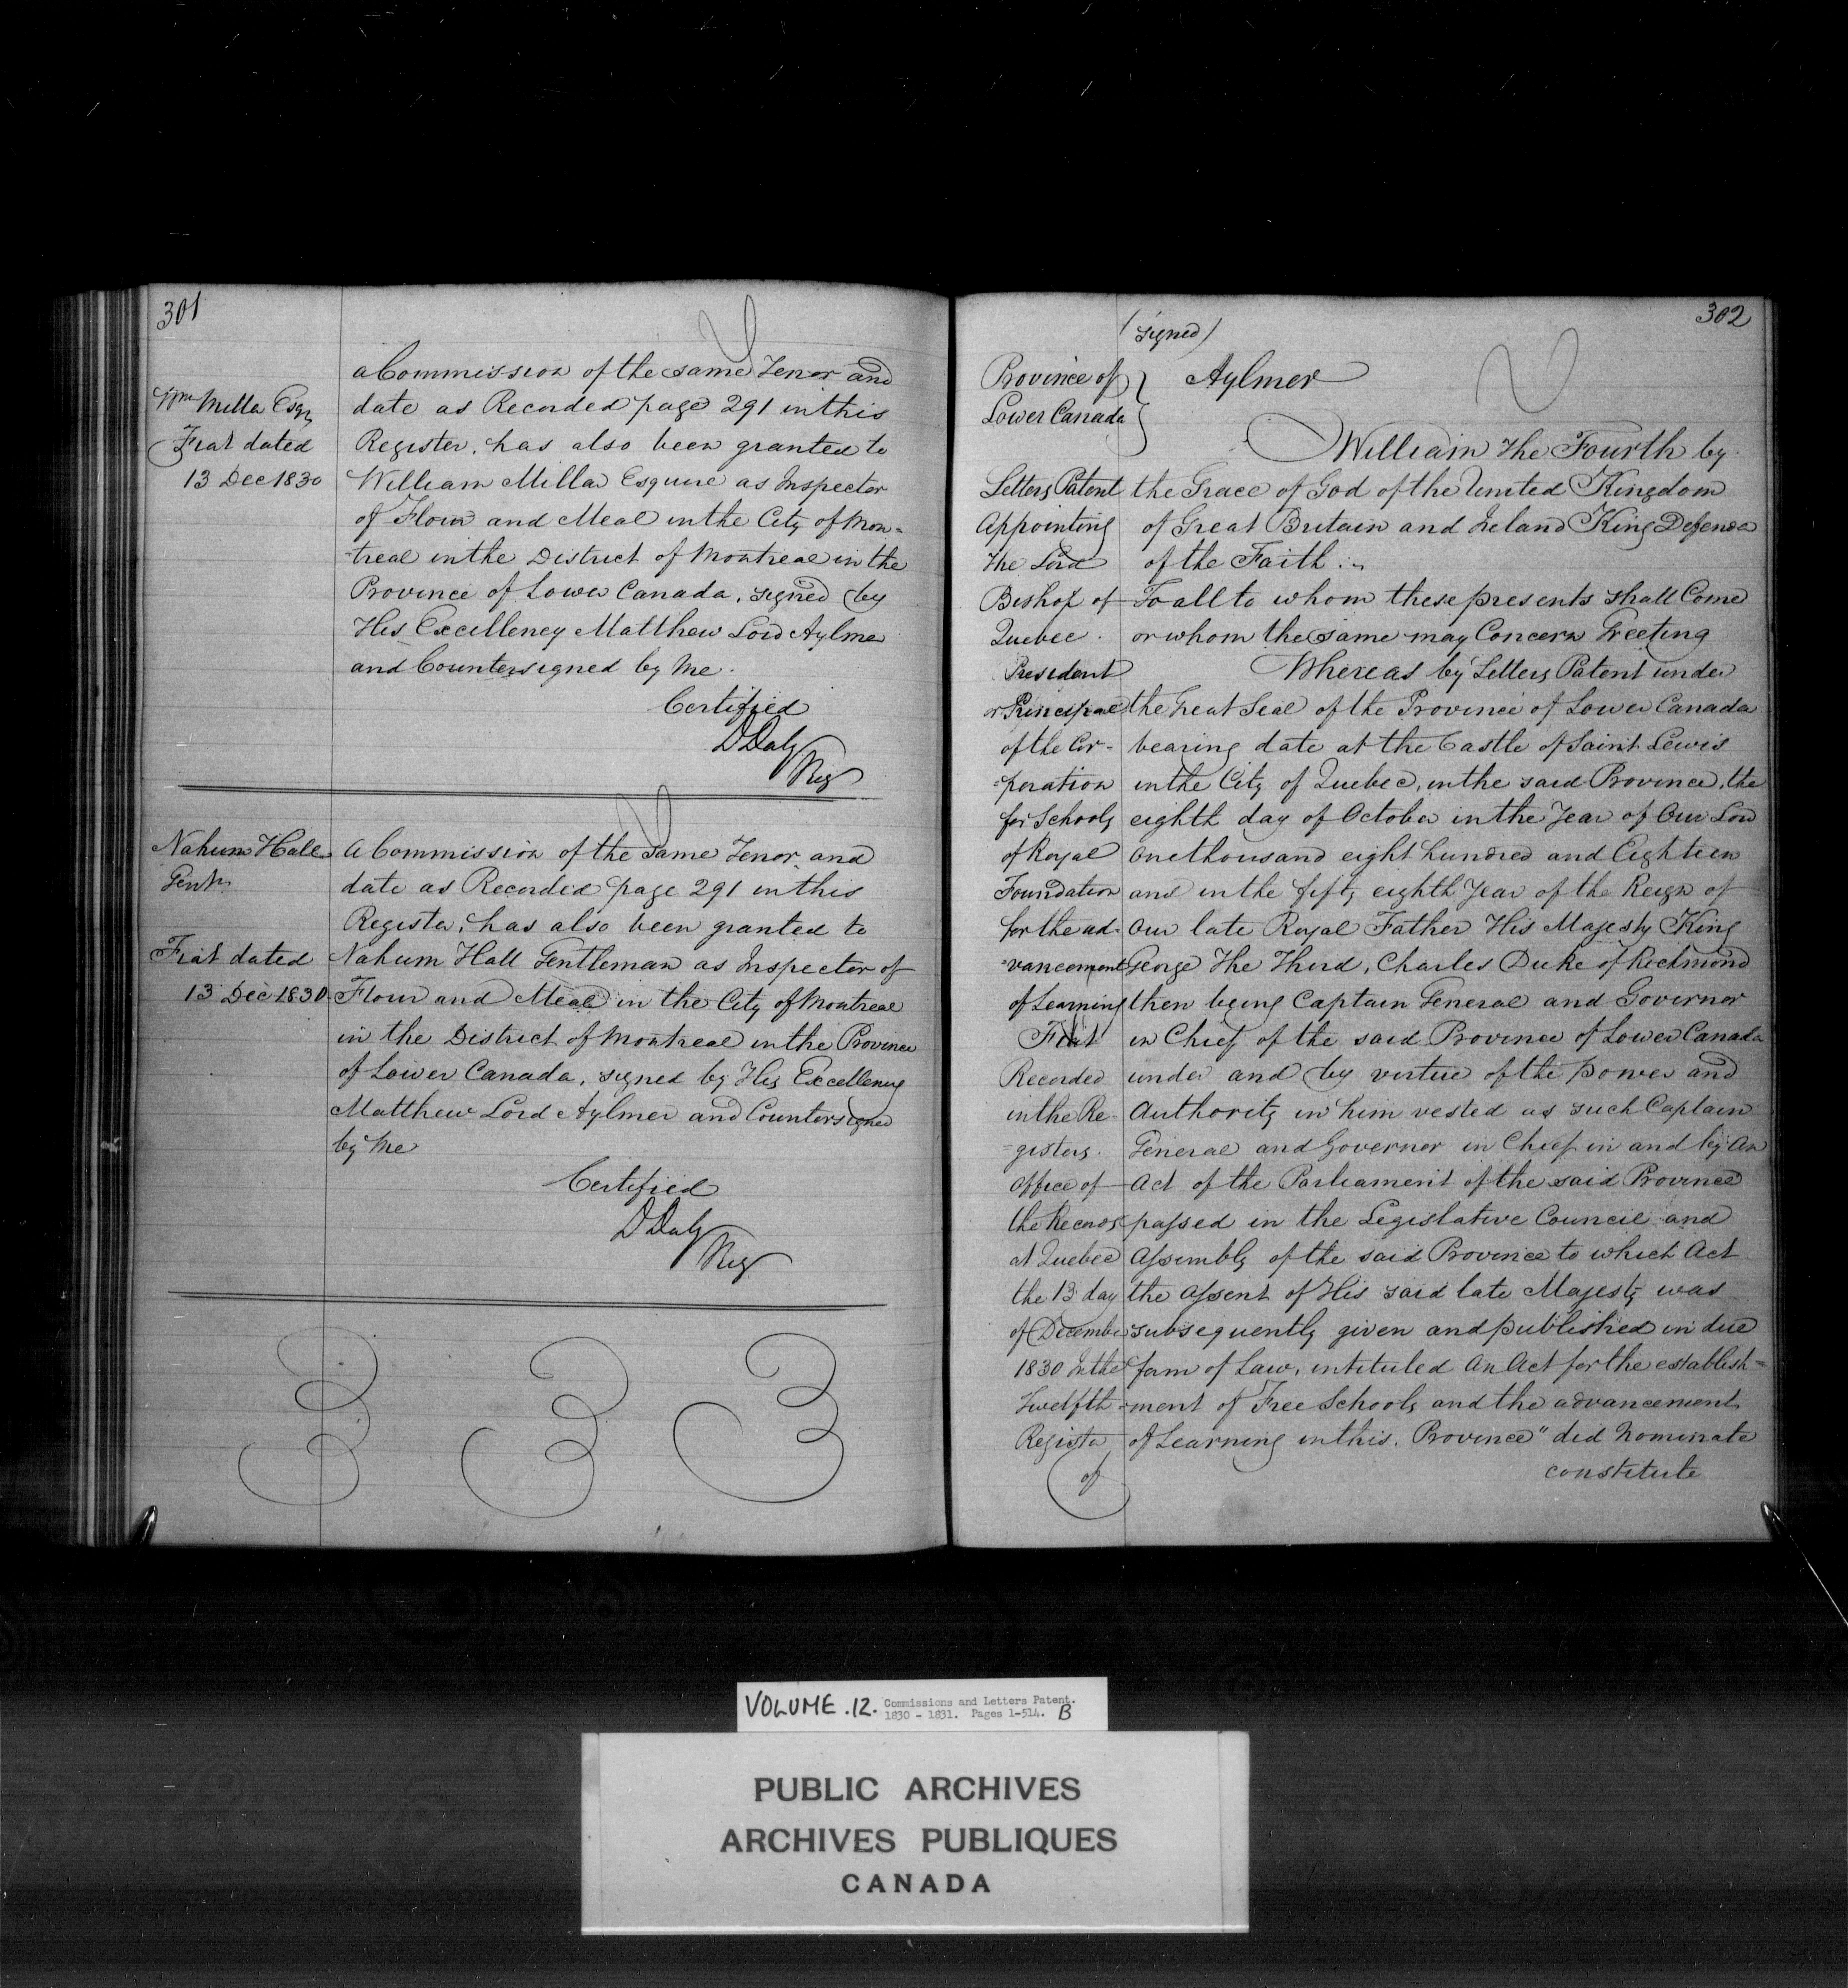 301
a Commission of the same Tenor and
Wm Milla Esqr
date as Recorded page 291 in this
Fiat dated
Register, has also been granted to
13 Dec 1830
William Milla Esquire as Inspector
of Flour and Meal in the City of Mon=
treal in the District of Montreal in the
Province of Lower Canada, signed by
His Excellency Matthew Lord Aylmer
and Countersigned by Me.
Certified
DDaly
Reg
Nahum Hall
Gentn
A Commission of the Same Tenor and
date as Recorded page 291 in this
Register, has also been granted to
Fiat dated
Nahum Hall Gentleman as Inspector of
13 Dec 1830
Flour and Meal in the City of Montreal
in the District of Montreal in the Province
of Lower Canada, signed by His Excellency
Matthew Lord Aylmer and Countersigned
by Me
Certified
DDaly
Reg
302
(signed)
Province of
Lower Canada
Aylmer
William The Fourth by
Letters Patent
Appointing
The Lord
Bishop of
Quebec.
President
or Principal
of the Cor-
=poration
for Schools
of Royal
Foundation
for the ad-
=vancement
of Learning
Fiat
Recorded
in the Re-
=gisters.
Office of
the Records
at Quebec
the 13 day
of December
1830 In the
Twelfth
Register
of
the Grace of God of the United Kingdom
of Great Britain and Ireland King Defender
of the Faith :~
To all to whom these presents shall Come
or whom the same may Concern Greeting
Whereas by Letters Patent under
the Great Seal of the Province of Lower Canada
bearing date at the Castle of Saint Lewis
in the City of Quebec, in the said Province, the
eighth day of October in the Year of Our Lord
One thousand eight hundred and Eighteen
and in the fifty eighth Year of the Reign of
Our late Royal Father His Majesty King
George The Third, Charles Duke of Richmond
then being Captain General and Governor
in Chief of the said Province of Lower Canada
under and by virtue of the power and
Authority in him vested as such Captain
General and Governor in Chief in and by An
Act of the Parliament of the said Province
passed in the Legislative Council and
Assembly of the said Province to which Act
the Assent of His said late Majesty was
subsequently given and published in due
form of Law, intituled An Act for the establish=
=ment of Free Schools and the advancement
of Learning in this Province" did Nominate
constitute
VOLUME . 12. Commissions and Letters Patent.
1830 - 1831. Pages 1-514. B
PUBLIC ARCHIVES
ARCHIVES PUBLIQUES
CANADA